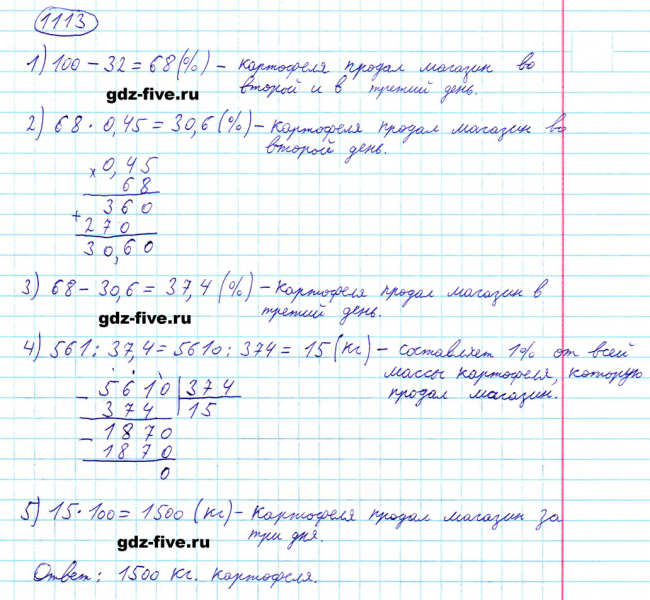 1113
1) 100 – 32 = 68 (%) – картофеля продал магазин во
второй и в третий день.
gdz-five.ru
2) 68 · 0,45 = 30,6 (%) – картофеля продал магазин во
второй день.
× 0,45
68
+ 360
270
30,60
3) 68 – 30,6 = 37,4 (%) – картофеля продал магазин в
третий день.
gdz-five.ru
4) 561 : 37,4 = 5610 : 374 = 15 (кг) – составляет 1% от всей
массы картофеля, которую
продал магазин.
– 5610 | 374
374 | 15
– 1870
1870
0
5) 15 · 100 = 1500 (кг) – картофеля продал магазин за
три дня.
gdz-five.ru
Ответ: 1500 кг. картофеля.